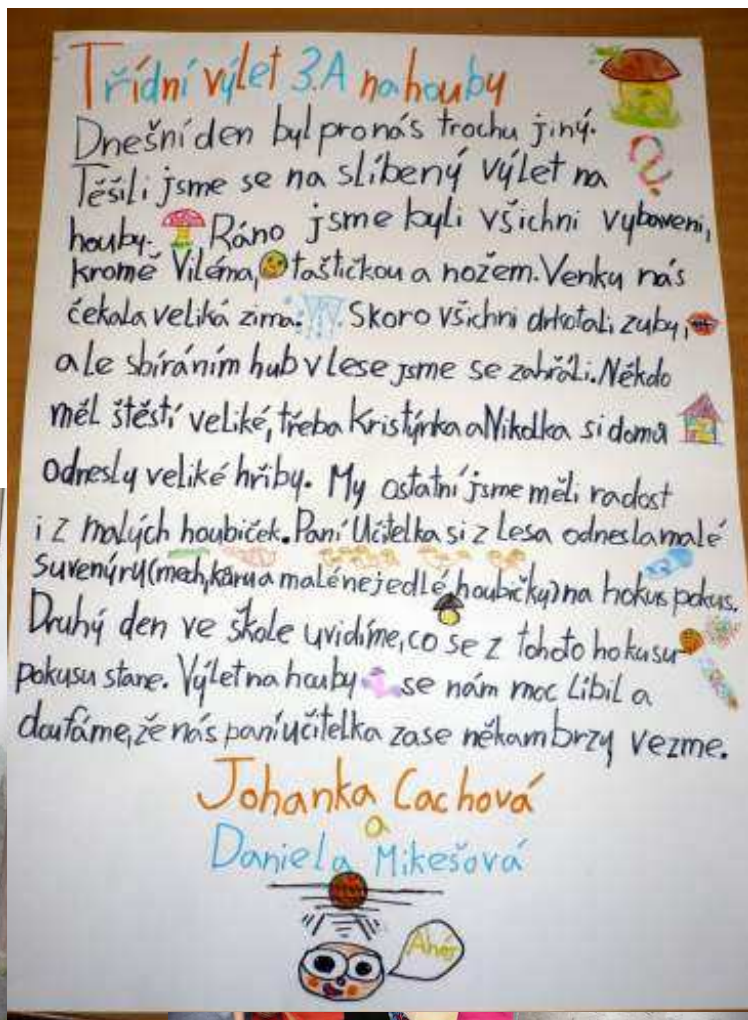 Třídní výlet 3.A na houby
Dnešní den byl pro nás trochu jiný.
Těšili jsme se na slíbený výlet na
houby. Ráno jsme byli všichni vybaveni,
kromě Viléma, taštičkou a nožem. Venku nás
čekala veliká zima. Skoro všichni drkotali zuby,
ale sbíráním hub v lese jsme se zahřáli. Někdo
měl štěstí veliké, třeba Kristýnka a Nikolka si domů
odnesly veliké hřiby. My ostatní jsme měli radost
i z malých houbiček. Paní Učitelka si z lesa odnesla malé
suvenýry (mech, kůru a malé nejedlé houbičky) na hokus pokus.
Druhý den ve škole uvidíme, co se z tohoto hokusu
pokusu stane. Výlet na houby se nám moc líbil a
doufáme, že nás paní učitelka zase někam brzy vezme.
Johanka Cachová
a
Daniela Mikešová
Ahoj